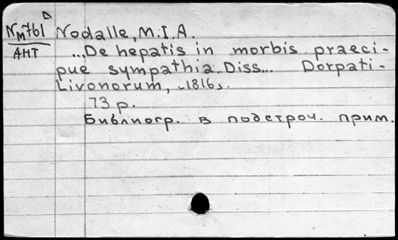 Nм761 Nodalle, M.I.A.
АНТ ...De hepatis in morbis praeci-
pue sympathia. Diss... Dorpati-
Livonorum, 1816.
73 p.
Библиогр. в подстроч. прим.